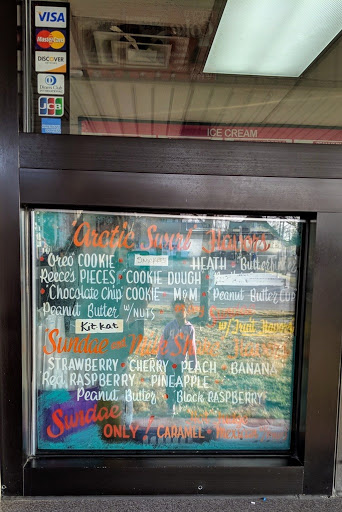 VISA
MasterCard
DISCOVER
Diners Club
JCB
ICE CREAM
Arctic Swirl Flavors
Oreo COOKIE HEATH Butterfinger
Reese's PIECES COOKIE DOUGH
Chocolate Chip COOKIE M&M Peanut Butter CUP
Peanut Butter w/ NUTS
Kit Kat
Sundae and Milk Shake
STRAWBERRY CHERRY PEACH BANANA
Red RASPBERRY PINEAPPLE
Peanut Butter Black RASPBERRY
Sundae
ONLY CARAMEL